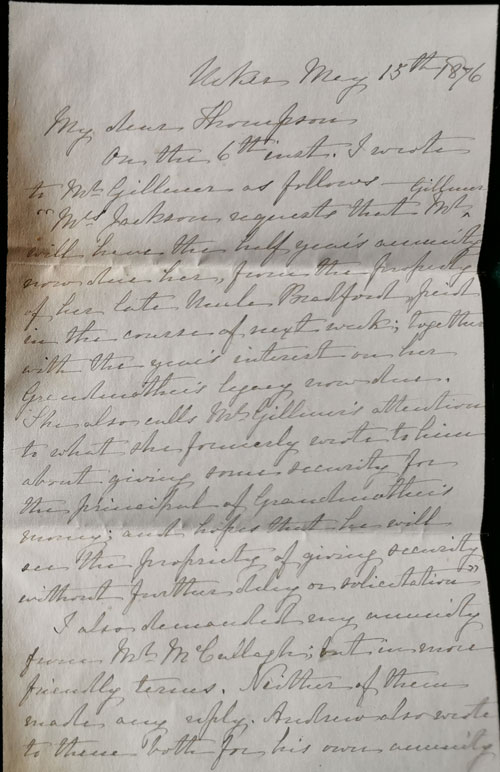 May 15th 1876
My dear Thompson
On the 6th inst. I wrote
to Mr Gillmer as follows —
"Mrs Jackson requests that Mr ^Gillmer
will have the half year's annuity
now due her, from the property
of her late Uncle Bradford, paid
in the course of next week; together
with the year's interest on her
Grandmother's legacy now due.
She also calls Mr Gillmer's attention
to what she formerly wrote to him
about giving some security for
the principal of Grandmother's
money; and hopes that he will
see the propriety of giving security
without further delay or solicitation"
I also demanded my annuity
from Mr McCullagh; but in more
friendly terms. Neither of them
made any reply. Andrew also wrote
to them both for his own annuity